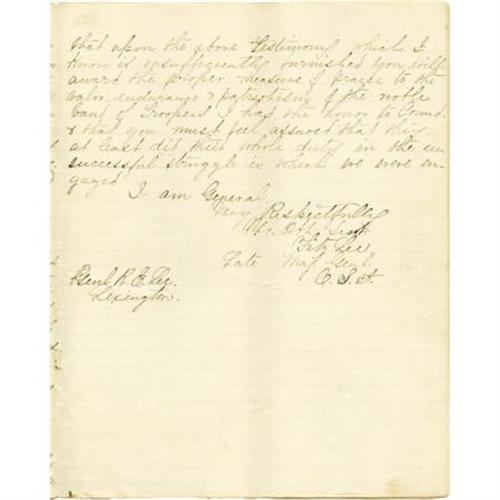 that upon the above testimony which I
know is insufficiently furnished you will
award the proper measure of praise to the
valor, endurance & patriotism of the noble
band of Troopers I had the honor to Comd.
& that you must feel assured that they
at least did their whole duty in the un
successful struggle in which we were en
gaged
I am General
Very Respectfully
Yr. Obt. Servt
Fitz Lee
Late Maj. Genl.
C. S. A.
Genl R. E. Lee.
Lexington.